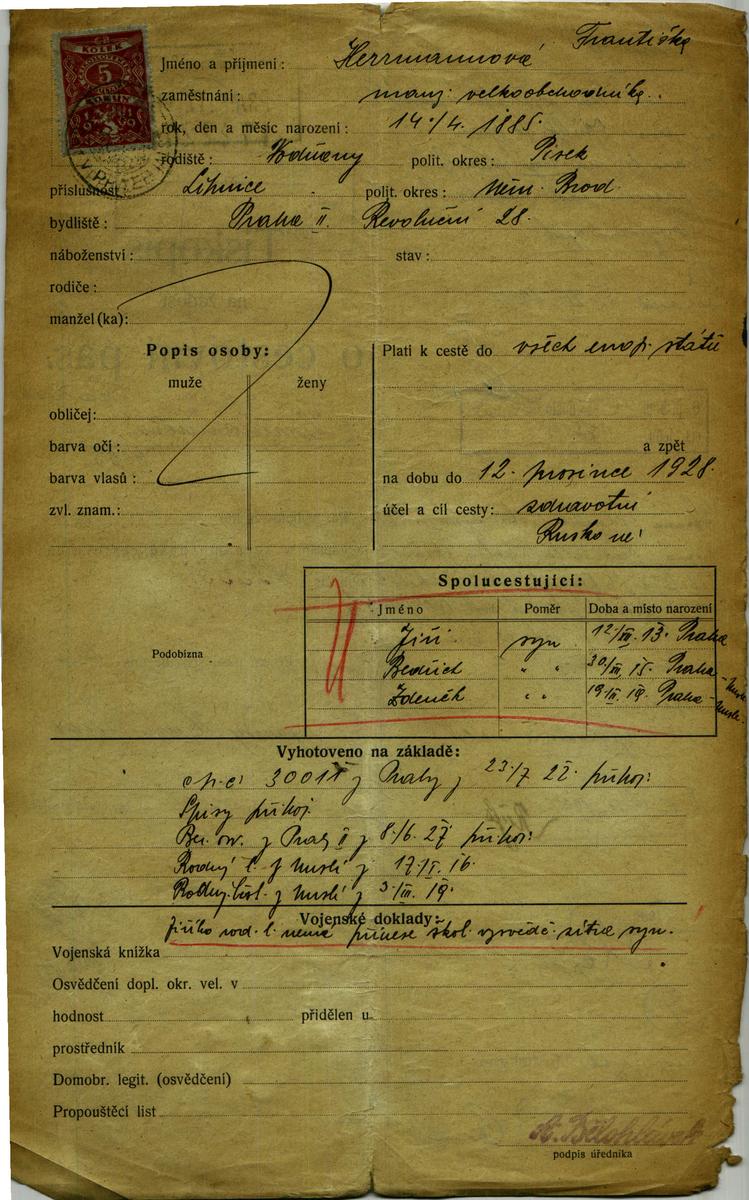 KOLEK
5
KORUN
Jméno a příjmení: Herrmannová Františka
zaměstnání: manž. velkoobchodníka.
rok, den a měsíc narození: 14./4. 1885.
rodiště: Vodňany polit. okres: Písek
příslušnost Lihnice polit. okres: Něm. Brod.
bydliště: Praha II. Revoluční 28.
náboženství: stav:
rodiče:
manžel (ka):
Popis osoby:
muže ženy
obličej:
barva očí:
barva vlasů:
zvl. znam.:
Platí k cestě do všech evrop. států
a zpět
na dobu do 12. prosince 1928.
účel a cíl cesty: zdravotní
Rusko ne!
Spolucestující:
Jméno Poměr Doba a místo narození
Jiří syn 12/XII. 13. Praha
Bedřich " " 30/XII. 15. Praha - Nusle
Zdeněk " " 19/II. 19. Praha - Nusle
Podobizna
Vyhotoveno na základě:
z Prahy z 23/7 22. připoj:
Spisy připoj.
z Prahy II z 8./6. 27 připoj:
Rodný l. z Nuslí z 17/I. 16.
Rodný list z Nuslí z 3/III. 19.
Vojenské doklady:
Jiřího rod. l. nemá přinese škol. vysvědč. zítra syn.
Vojenská knížka
Osvědčení dopl. okr. vel. v
hodnost přidělen u
prostředník
Domobr. legit. (osvědčení)
Propouštěcí list
podpis úředníka